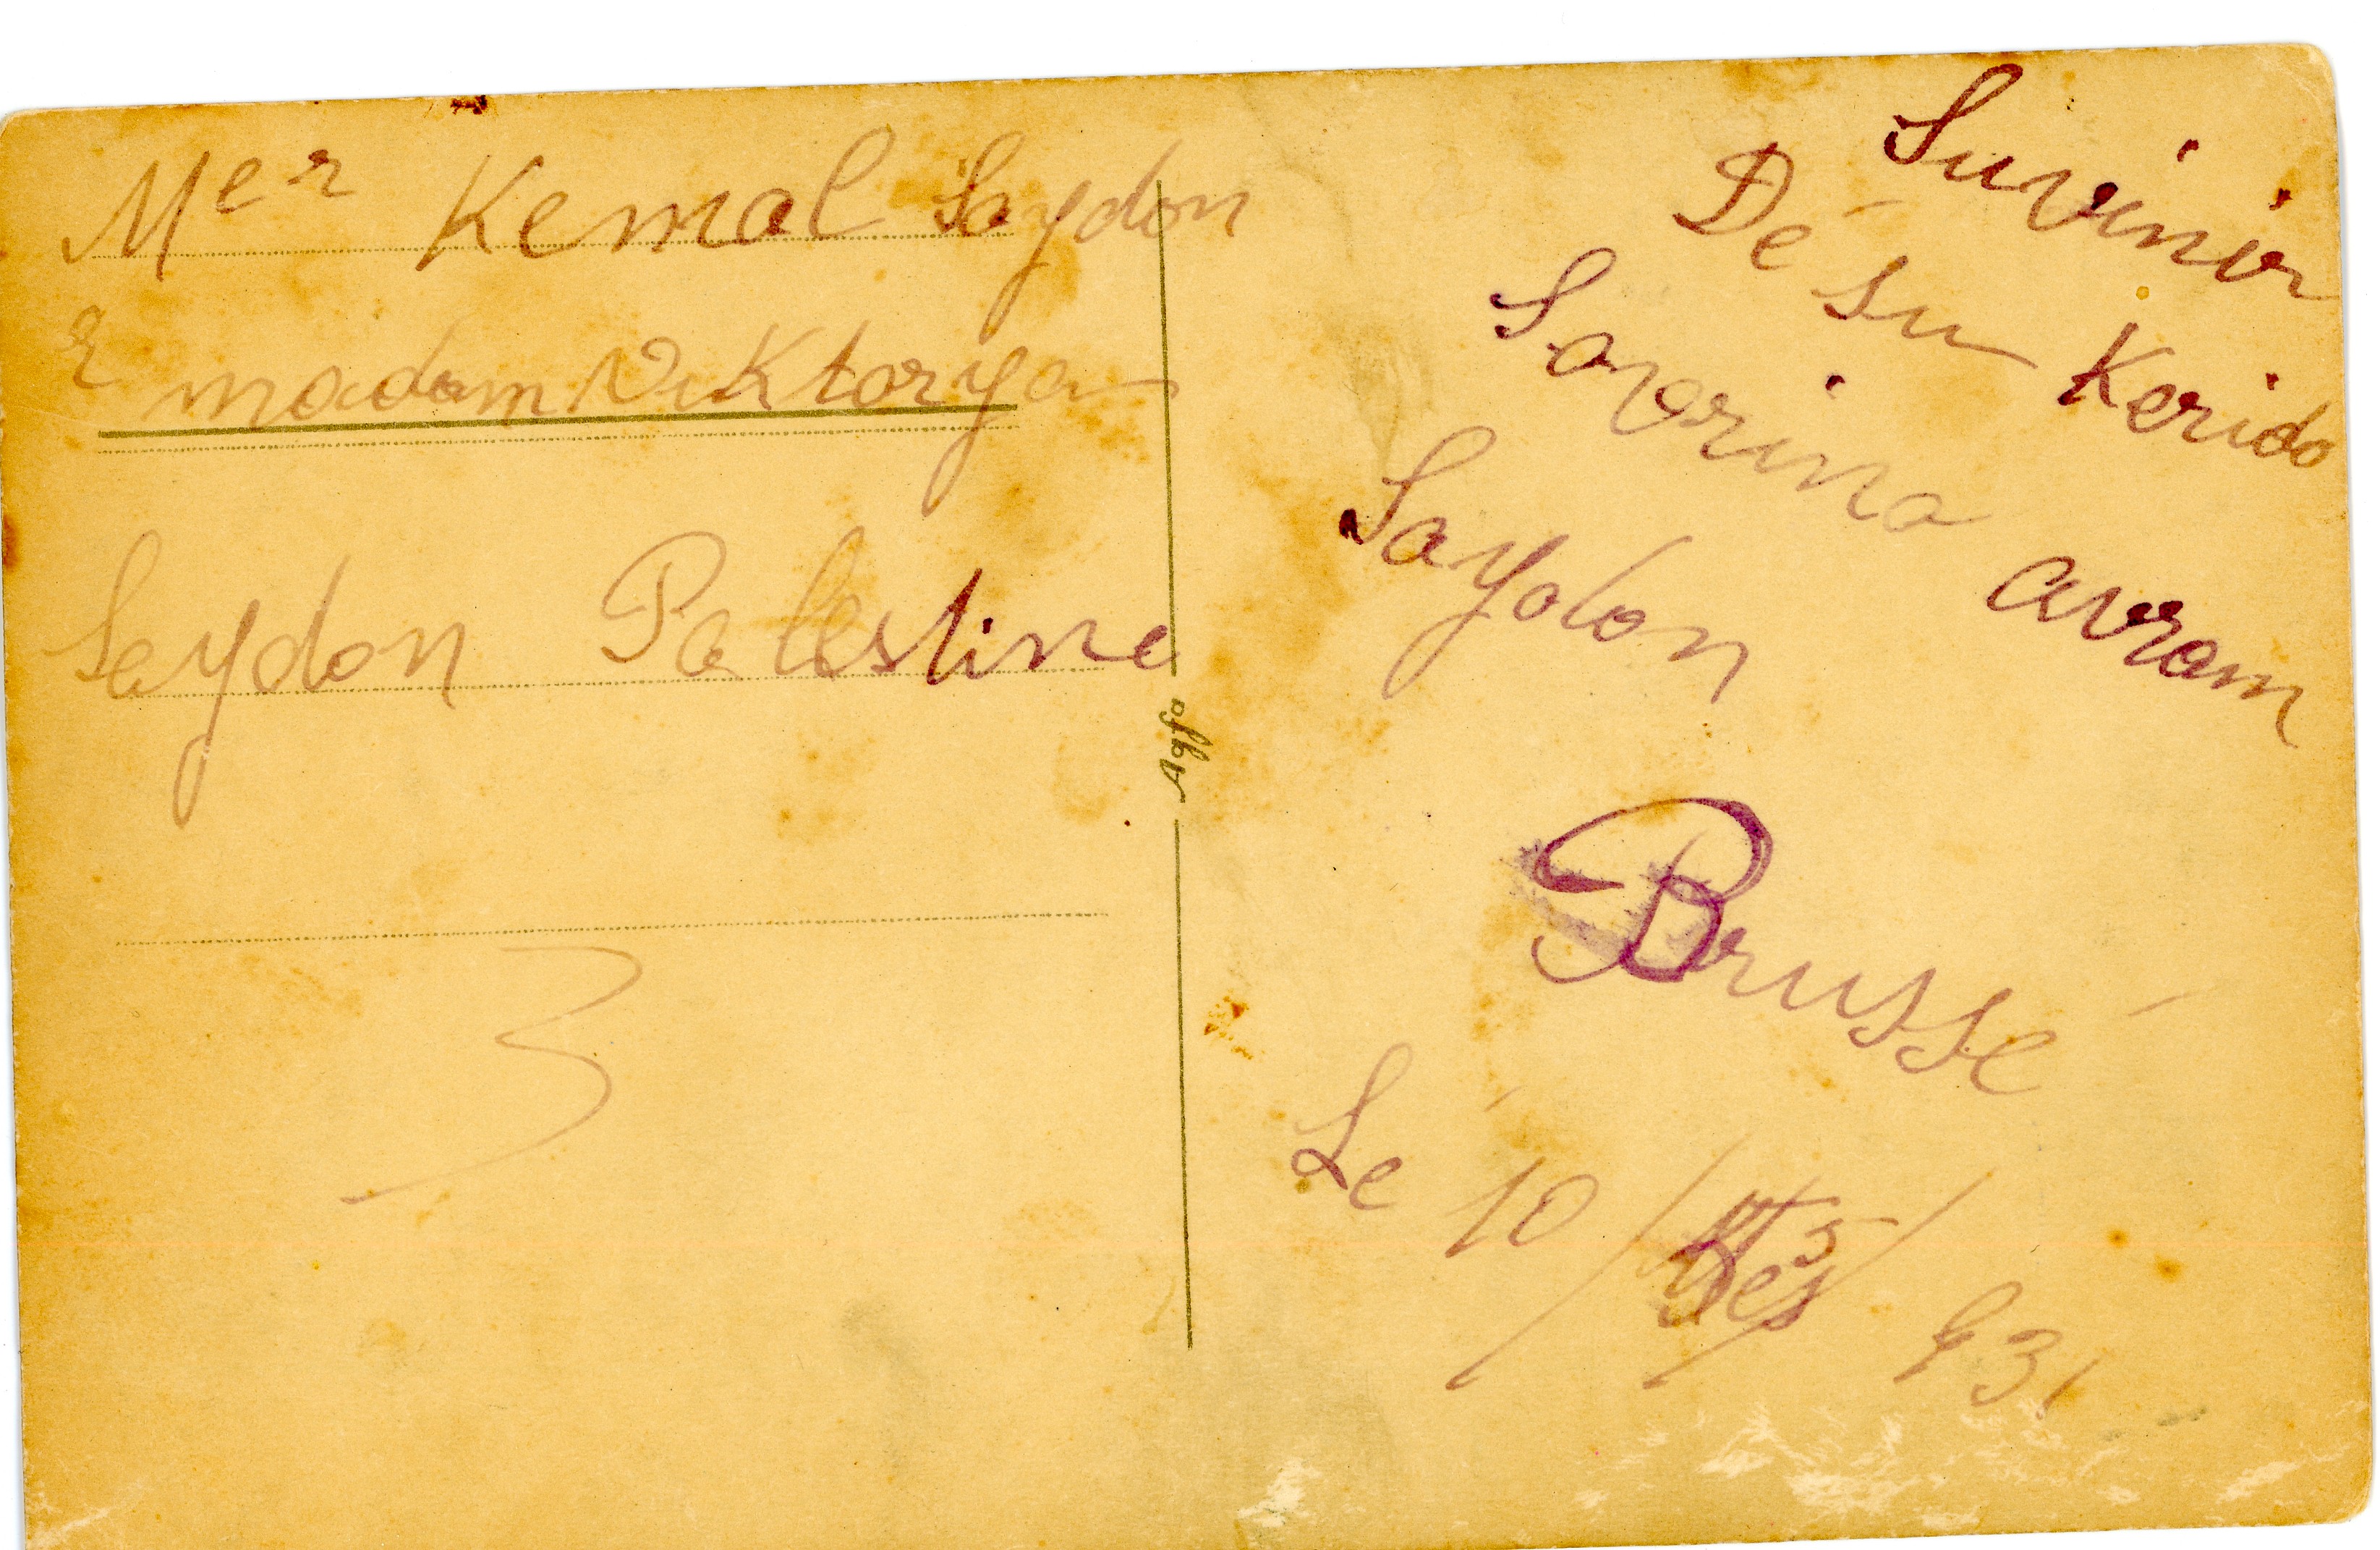 Mer Kemal Saydon
& madam Viktorya
Saydon Palestine
3
Agfa
Suvinir
Dé su Kerido
Savorina avram
Saydon
Brussé
Lé 10 / 5 / 931